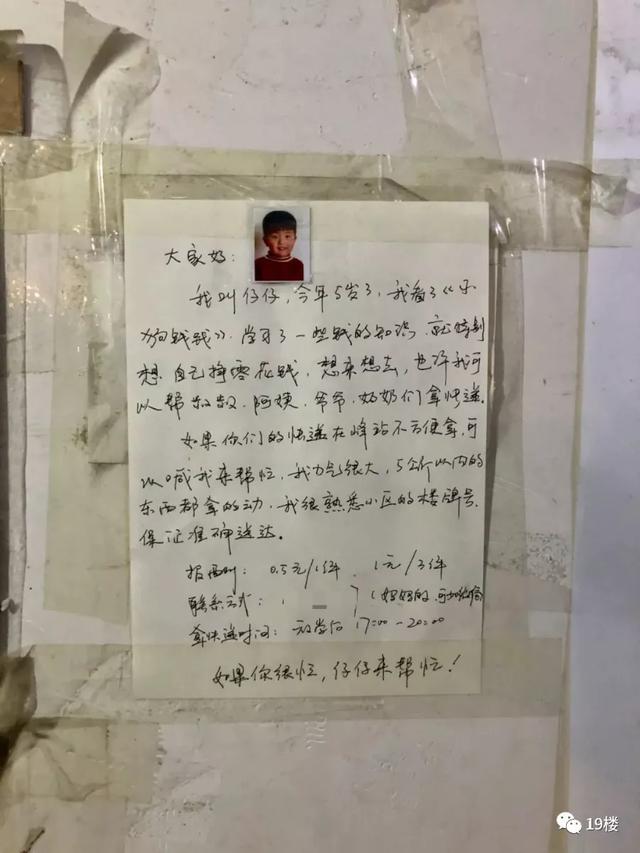 大家好：
我叫仔仔，今年5岁了，我看了《小
狗钱钱》，学习了一些钱的知识，就特别
想自己挣零花钱，想来想去，也许我可
以帮叔叔、阿姨、爷爷、奶奶们拿快递。
如果你们的快递在峰站不方便拿，可
以喊我来帮忙，我力气很大，5公斤以内的
东西都拿的动，我很熟悉小区的楼牌号，
保证准确送达。
报酬： 0.5元/1件、1元/3件
联系方式： （妈妈的，可加微信
拿快递时间：放学后 17:00-20:00
如果你很忙，仔仔来帮忙！
19楼